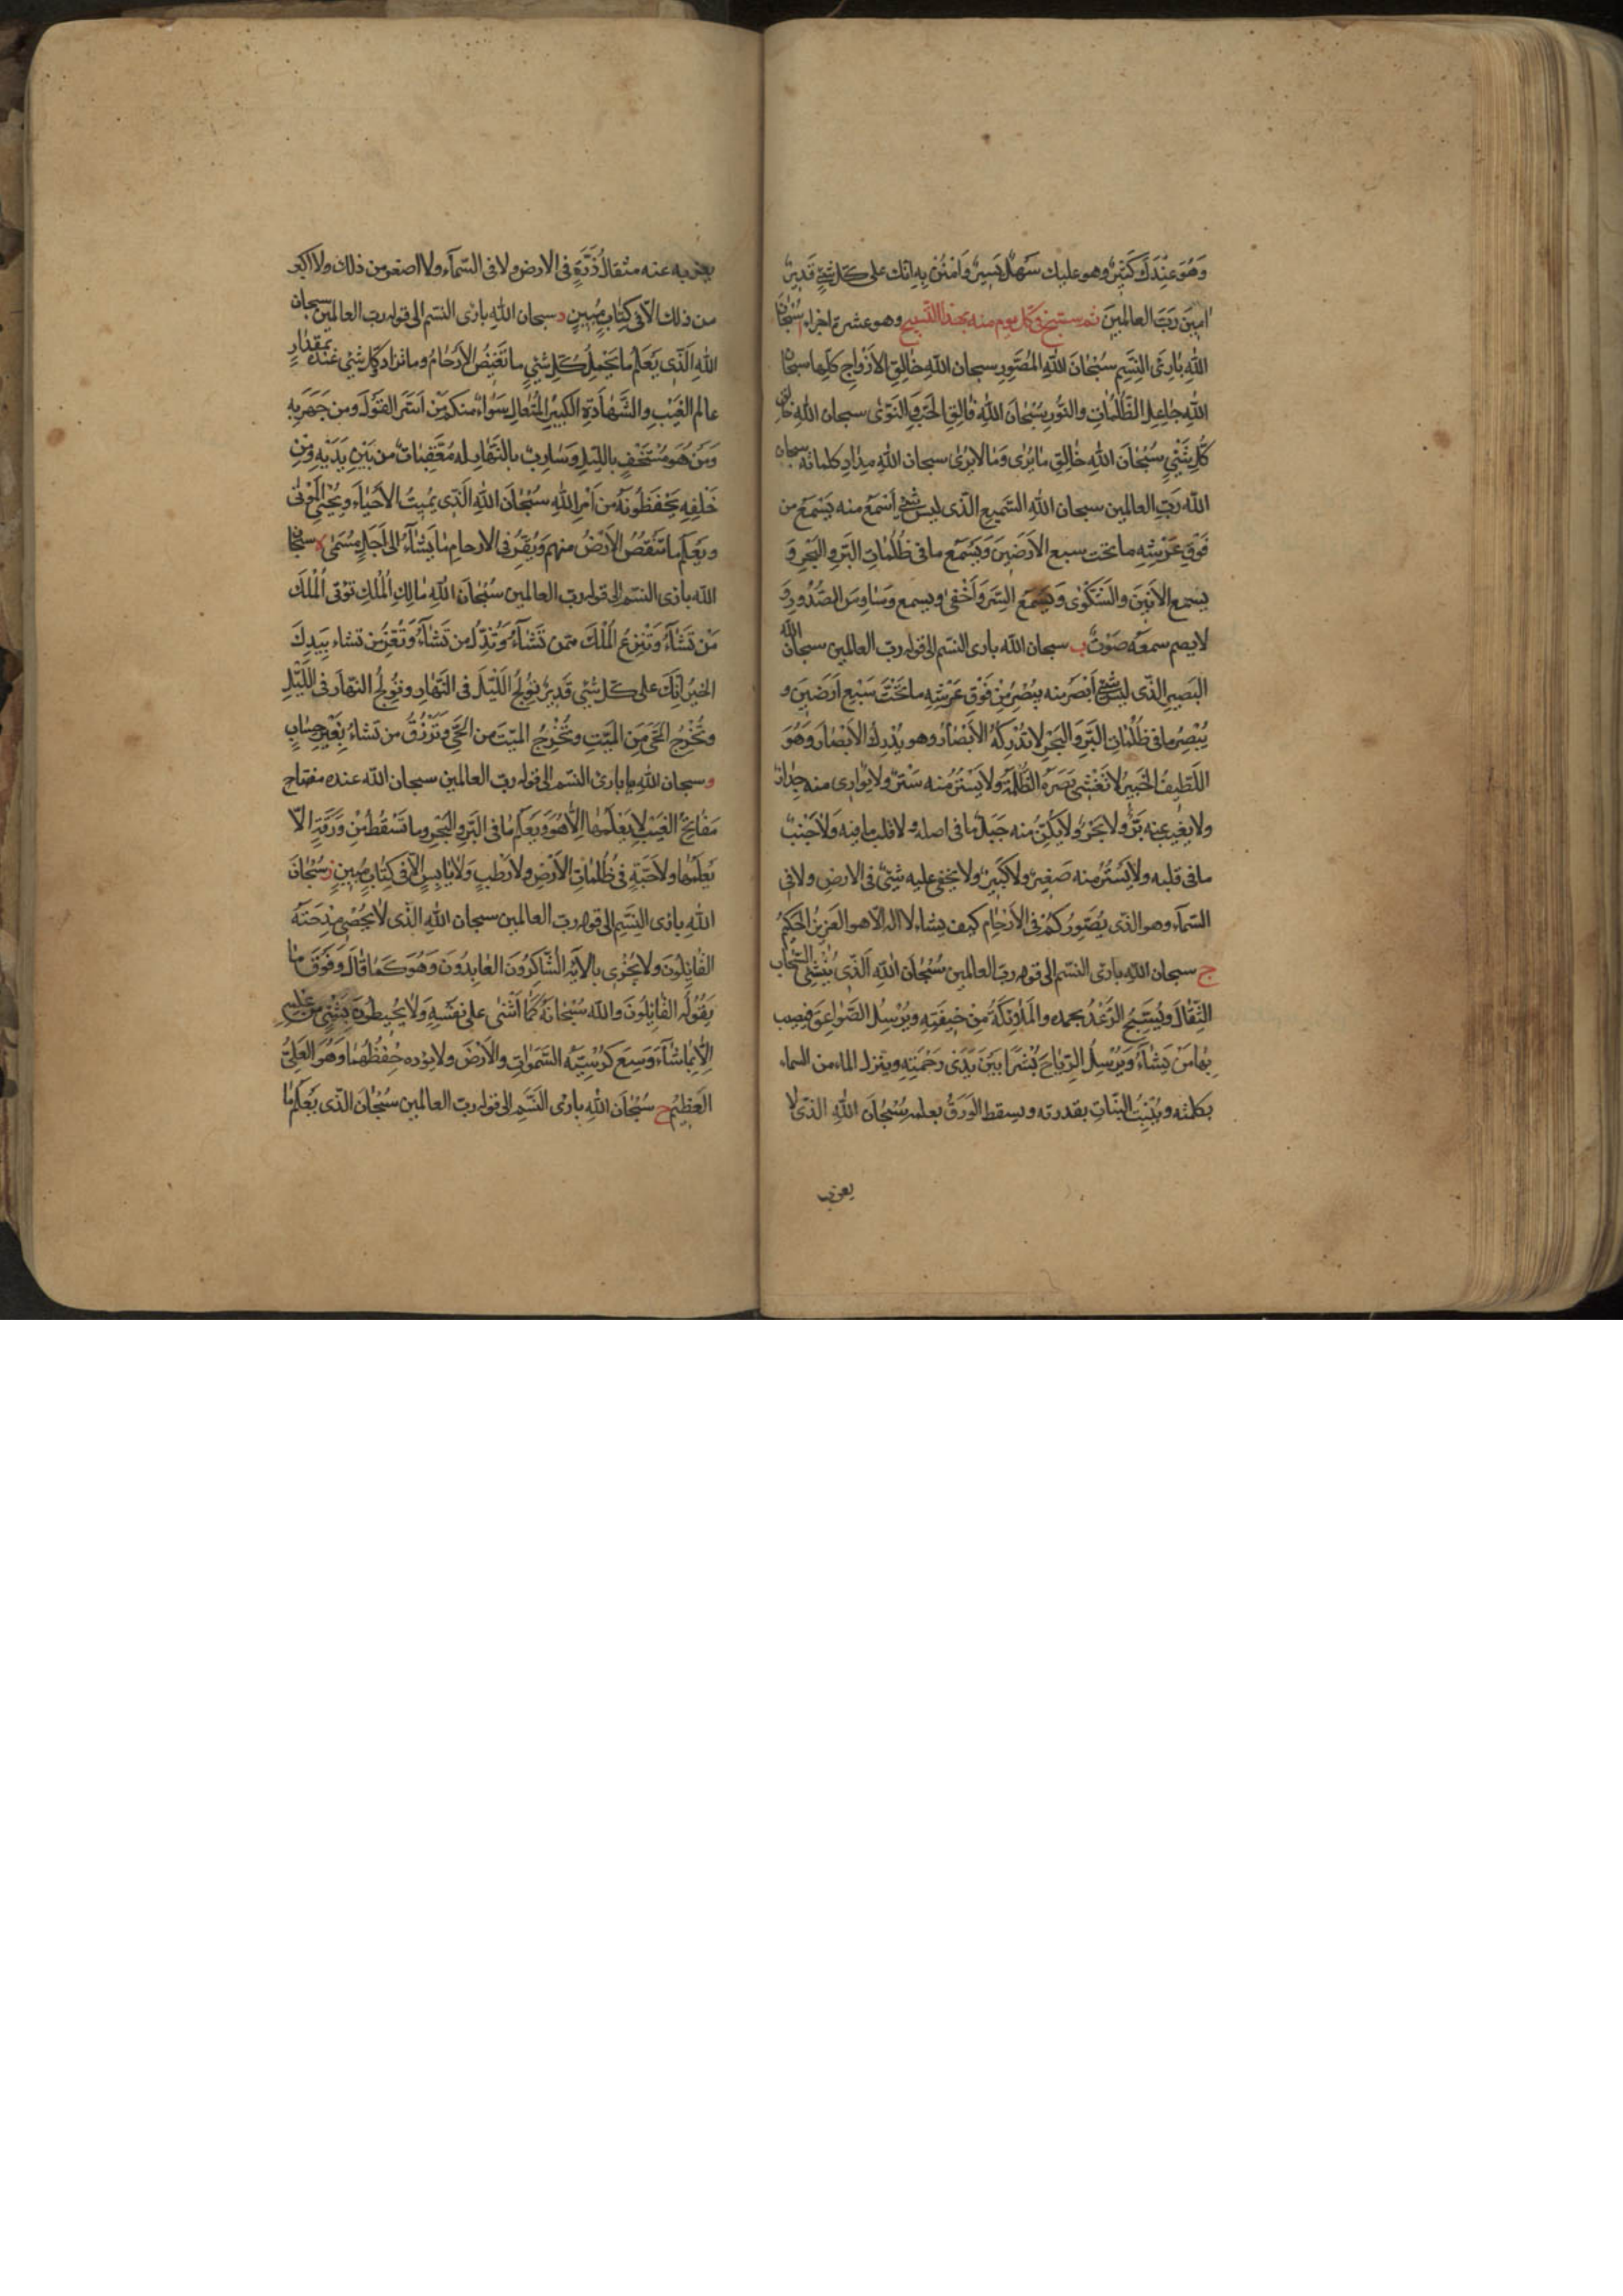 وَهُوَ عِنْدَكَ كَثِيرٌ وهو عليك سَهْلٌ يَسِيرٌ وَامْنُنْ بِهِ انّك على كلّ شئٍ قَدِيرٌ
امِينَ رَبَّ العالمِينَ ثم سبّح في كل يوم منه بهذا التّسبيح وهو عشرة اجزاء ا سُبْحَانَ
اللهِ بٰارِئِ النَّسَمِ سُبْحٰانَ اللهِ المُصَوِّرِ سبحان اللهِ خٰالِقِ الاَزْوٰاجِ كلّها سبحان
اللهِ جٰاعِلِ الظُّلُمٰاتِ والنّورِ سُبْحٰانَ اللهِ فٰالِقِ الحَبِّ وَالنَّوىٰ سبحان اللهِ خالق
كُلِّ شَيْءٍ سُبْحٰانَ اللهِ خٰالِقِ مٰا يُرىٰ وَمٰا لا يُرىٰ سبحان اللهِ مِدٰادَ كلماته سبحان
الله رَبِّ العالمين سبحان اللهِ السَّمِيعِ الّذى ليس شئ اَسْمَعَ منه يَسْمَعُ من
فَوْقِ عَرْشِهِ ما تحت سبع الاَرَضِينَ وَيَسْمَع ما فى ظُلُمٰاتِ البَرِّ والبَحْرِ وَ
يسمع الاَنِينَ والشَّكْوىٰ وَيَسْمَع السِّرَّ وَاَخْفىٰ ويسمع وَسٰاوِسَ الصُّدُورِ وَ
لا يصم سمعَه صَوْتٌ ب سبحان الله بارئ النّسم الى قوله ربّ العالمين سبحان الله
البَصِيرِ الّذى ليس شئ اَبْصَرَ منه يبْصِرُ مِنْ فَوْقِ عَرْشِهِ ما تَحْتَ سَبْعِ اَرَضِينَ و
يُبْصِرُ ما فى ظُلُمٰاتِ البَرِّ وَالبَحْرِ لا تُدْرِكُهُ الاَبْصٰارُ وهو يُدْرِكُ الاَبْصٰارَ وَهُوَ
اللَّطِيفُ الخَبِيرُ لا تَغْشىٰ بَصَرَهُ الظُّلْمَةُ ولا يُسْتَتَرُ منه بِسَتْرٍ ولا يُوٰارى منه جِدٰارٌ
ولا يغيب عنه بَرٌّ ولا بَحْرٌ ولا يَكِنُّ منه جَبَلٌ ما فى اصله ولا قلب ما فيه وَلا جَنْبٌ
ما فى قلبه ولا يَسْتَتِرُ منه صَغِيرٌ ولا كَبِيرٌ ولا يخفى عليه شئٌ فى الارض ولا فى
السّمآء وهو الذى يُصَوِّرُكُمْ فى الاَرْحٰامِ كيف يشاء لا اله الّا هو العَزِيزُ الحَكِيمُ
ج سبحان الله بارئ النّسم الى قوله ربّ العالمين سُبْحٰانَ اللهِ الَّذى يُنْشِئُ السَّحٰابَ
الثِّقٰالَ وَيُسَبِّحُ الرَّعْدُ بحمده والمَلٰائِكَةُ مِنْ خِيفَتِهِ ويُرْسِلُ الصَّوٰاعِقَ فيصيب
بِهٰا مَنْ يَشٰاءُ وَيُرْسِلُ الرِّيٰاحَ بُشْرًا بَيْنَ يَدَىْ رَحْمَتِهِ وينزل الماء من السماء
بكلمته ويُنْبِتُ النّبٰاتِ بقدرته ويسقط الوَرَقُ بعلمه سُبْحٰانَ اللهِ الذى لا
يعزب
يعزب عنه مثقال ذَرَّةٍ فى الارض ولا فى السّمآء ولا اصغر من ذلك ولا اكبر
من ذلك الّا فى كِتٰابٍ مُبِينٍ د سبحان اللهِ بارئ النسم الى قوله ربّ العالمين سبحان
اللهِ الَّذى يَعْلَمُ ما تَحْمِلُ كُلُّ شَيْءٍ ما تَغِيضُ الاَرْحٰامُ وما تزداد وكلّ شئٍ عنده بمقدارٍ
عالم الغَيْبِ والشَّهٰادَةِ الكَبِيرِ المُتَعٰالِ سَوٰاءٌ منكم مَنْ اَسَرَّ القَوْلَ ومن جَهَرَ بِهِ
وَمَنْ هُوَ مُسْتَخْفٍ بالليل وَسٰارِبٌ بالنّهٰارِ له مُعَقِّبٰاتٌ من بَيْنِ يَدَيْهِ وَمِنْ
خَلْفِهِ يَحْفَظُونَهُ من اَمْرِ اللهِ سُبْحٰانَ اللهِ الَّذى يُمِيتُ الاَحْيٰاءَ ويُحْيِى المَوْتىٰ
ويَعْلَمُ ما تَنْقُصُ الاَرْضُ منهم وَيُقِرُّ فى الارحام مٰا يَشٰآءُ الى اَجَلٍ مُسَمّىٰ ه سبحان
الله بارئ النسم الى قوله ربّ العالمين سُبْحٰانَ اللهِ مٰالِكِ المُلْكِ تؤتى المُلْكَ
مَنْ تَشٰآءُ وَتَنْزِعُ المُلْكَ ممّن تَشٰآءُ وَتُذِلُّ من تَشٰآءُ وَتُعِزُّ من تشاء بِيَدِكَ
الخيرُ اِنَّكَ على كلّ شئٍ قَدِيرٌ تُولِجُ اللَّيْلَ فى النَّهٰارِ وتُولِجُ النهٰارَ فى اللَّيْلِ
وتُخْرِجُ الحَىَّ مِنَ المَيِّتِ وتُخْرِجُ الميّتَ من الحَىِّ وَتَرْزُقُ من تشاءُ بِغَيْرِ حِسٰابٍ
و سبحان اللهِ يا بارئ النّسم الى قوله ربّ العالمين سبحان الله عنده مفتاح
مَفٰاتِحُ الغَيْبِ لا يَعْلَمُهٰا اِلّا هُوَ وَيَعْلَمُ مٰا فى البَرِّ والبَحْرِ وما تَسْقُطُ مِنْ وَرَقَةٍ الّا
يَعْلَمُهٰا ولا حَبَّةٍ فى ظُلُمٰاتِ الاَرْضِ ولا رَطْبٍ وَلا يٰابِسٍ اِلّا فى كِتٰابٍ مُبِينٍ ز سُبْحٰانَ
اللهِ بارئ النَّسَمِ الى قوله ربّ العالمين سبحان اللهِ الَّذى لا يُحْصِى مِدْحَتَهُ
القٰائِلُونَ ولا يَجْزِى بآلائِهِ الشّٰاكِرُونَ العٰابِدُونَ وَهُوَ كَمٰا قٰالَ وَفَوْقَ مٰا
يَقُولُ القٰائِلُونَ والله سُبْحٰانَهُ كَمٰا اَثْنىٰ عَلىٰ نَفْسِهِ وَلا يُحِيطُونَ بِشَيْءٍ من عِلْمِهِ
اِلّا بِمٰا شٰاءَ وَسِعَ كُرْسِيُّهُ السَّمٰوٰاتِ والاَرْضَ ولا يؤده حِفْظُهُمٰا وَهُوَ العَلِىُّ
العَظِيمُ ح سُبْحٰانَ اللهِ بارئ النَّسَمِ الى قوله ربّ العالمين سُبْحٰانَ الَّذى يَعْلَمُ مٰا